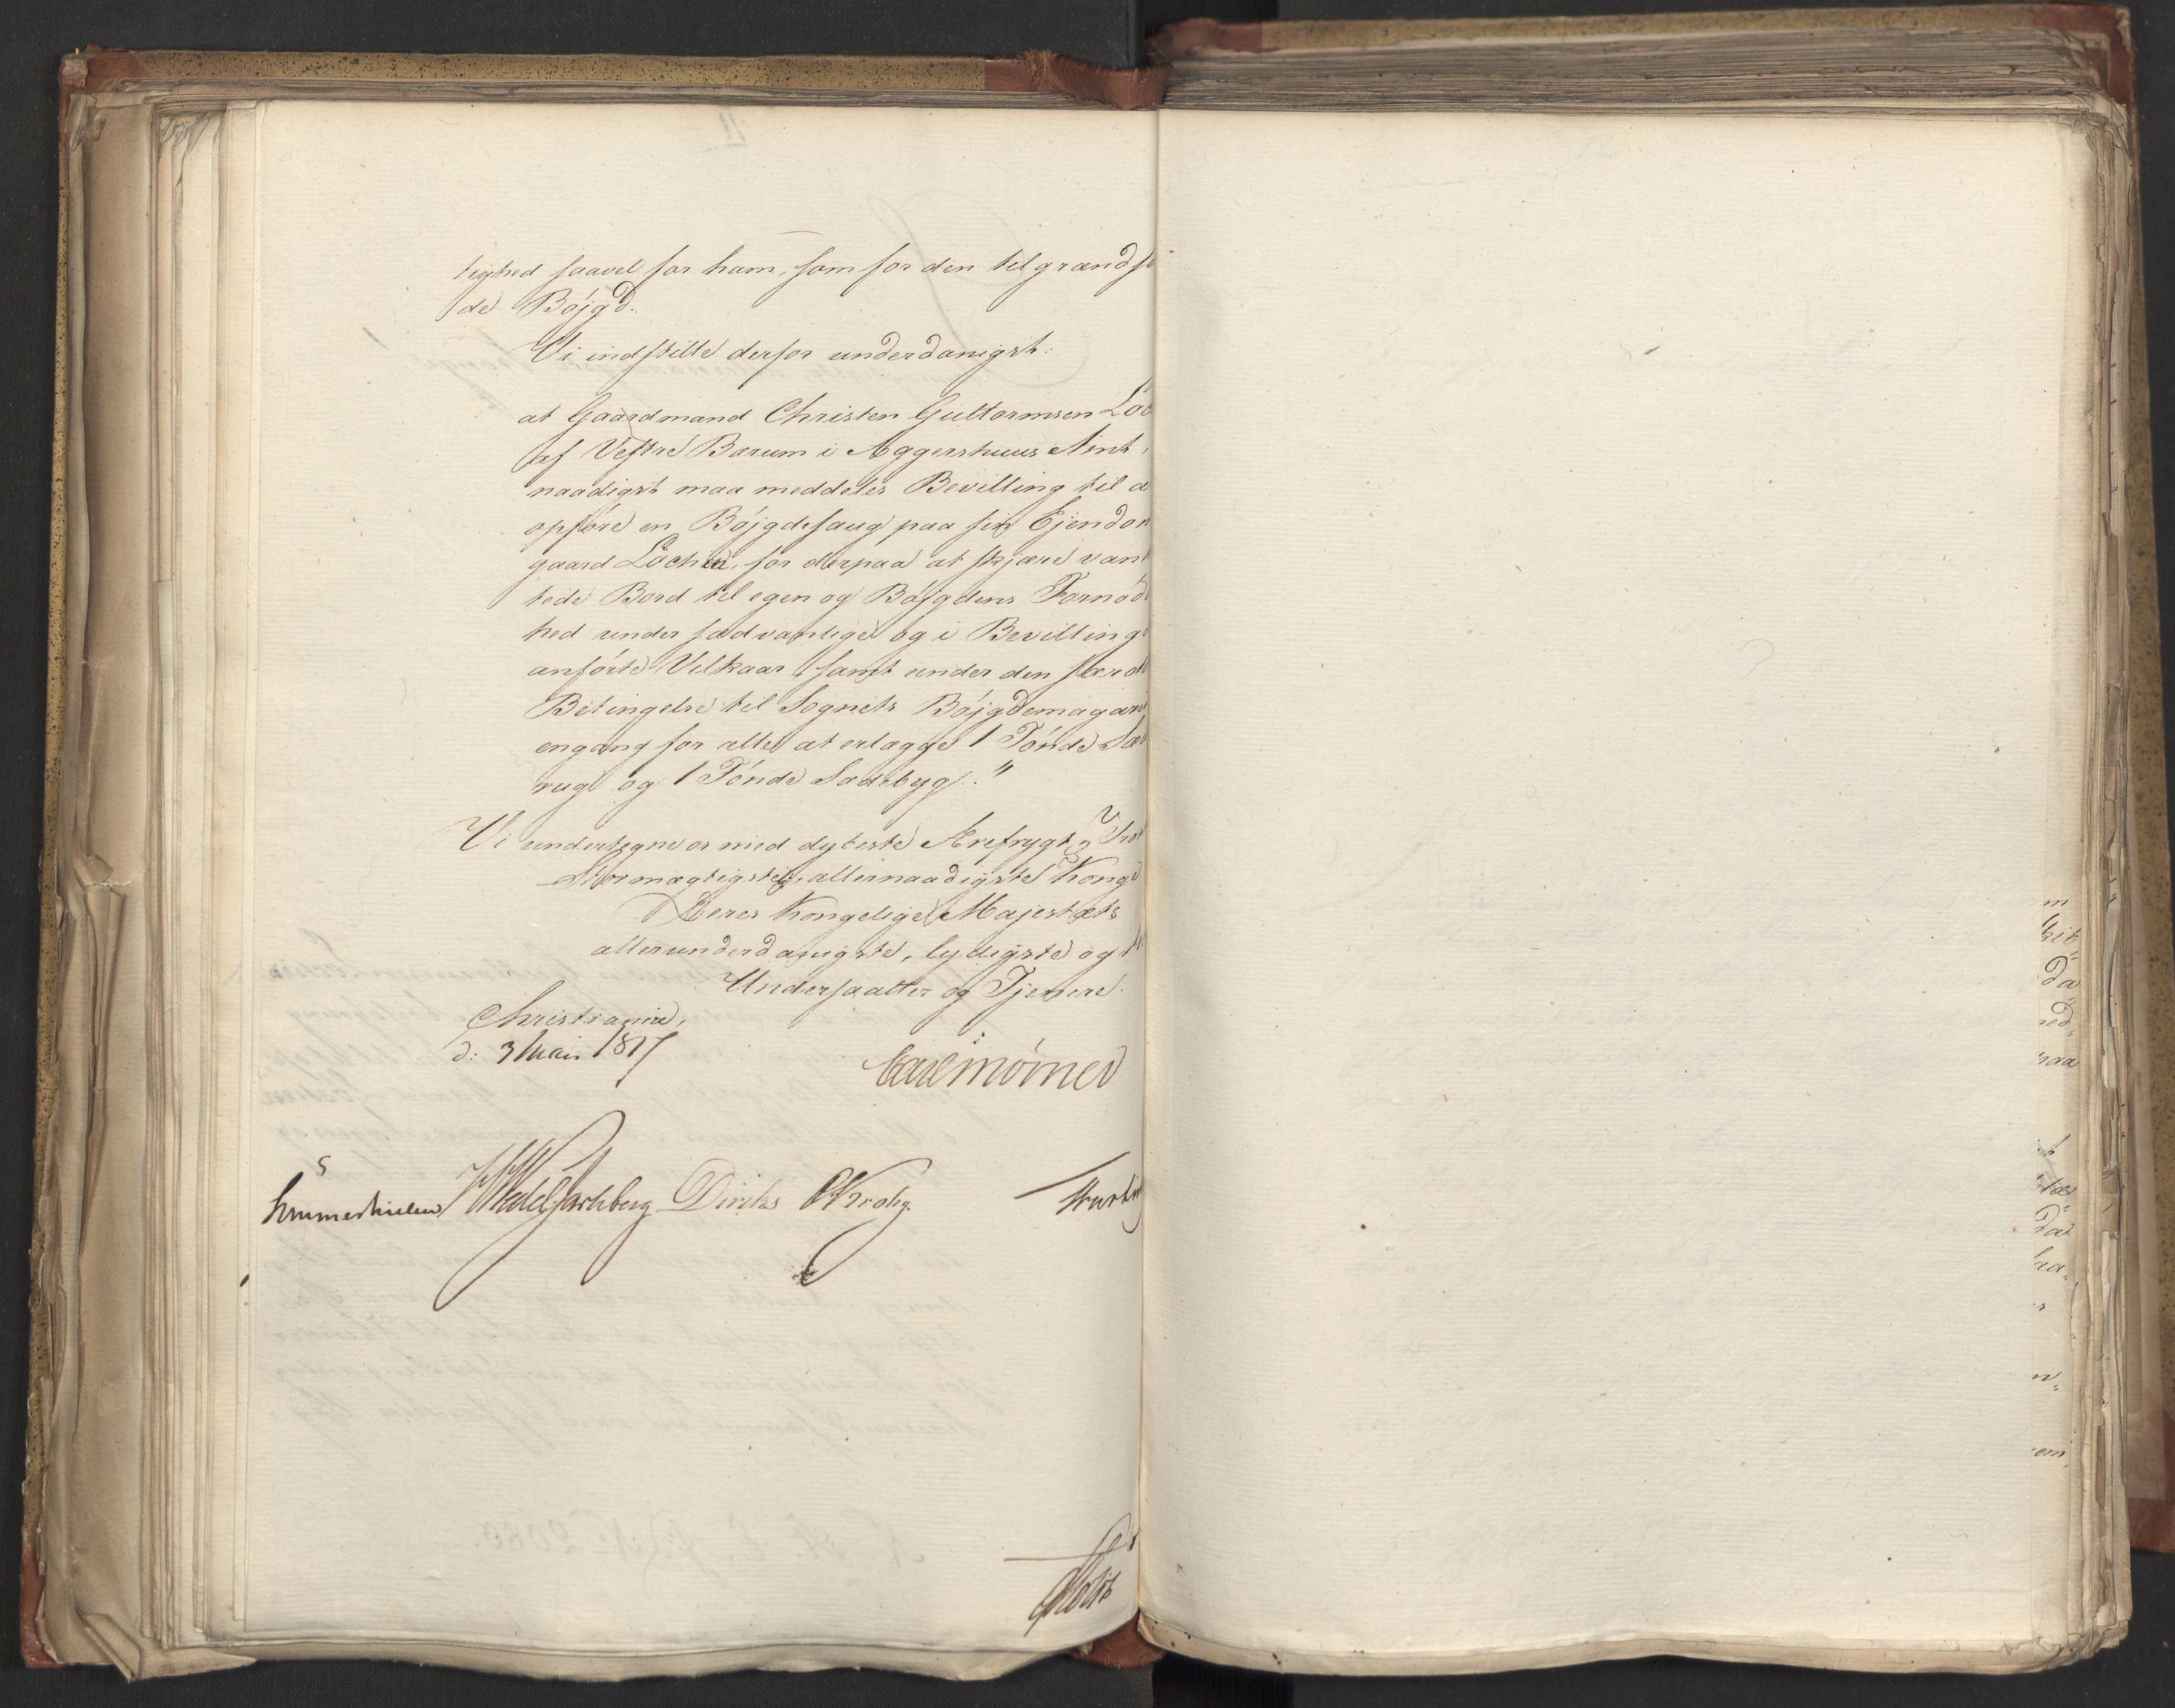 lighed saavel for ham, som for den tilgrændse
de Bøjgd.
Vi indstille derfor underdanigst:
at Gaardmand Christen Guttormsen Loc
af Vestre Barum i Aggershuus Amt,
naadigst maa meddeles Bevilling til a
opføre en Bøjgdesaug paa sin Ejendom
gaard Løchen, for derpaa at skjære vant
tede Bord til egen og Bøjgdens Fornød
hed under sædvanlige og i Bevillinge
anførte Vilkaar samt under den særd
Betingelse til Sognets Bøjgdemagazi
engang for alle at erlægge 1 Tønde Sæ
rug og 1 Tønde Sædebyg."
Vi undertegne os med dybeste Ærefrygt,
Stormægtigste, allernaadigste Konge
Deres Kongelige Majestæts
allerunderdanigste, lydigste og
Undersaatter og Tjenere.
Christiania,
d: 3 Mai 1817
Carl Mörner
Sommerhielm Wedel Jarlsberg Diriks Krohg
Holst
m
da
ed
paa
da
em